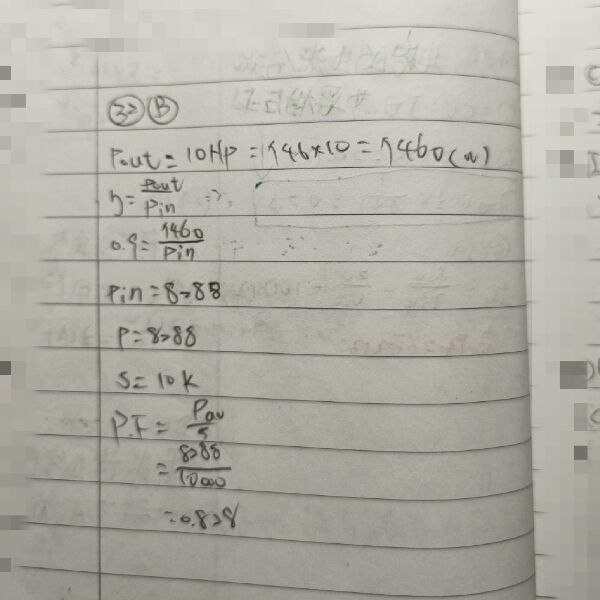 32 B
Pout = 10HP = 746×10 = 7460(w)
η = Pout/Pin ⇒
0.9 = 7460/Pin
Pin = 8288
P = 8288
S = 10k
P.F = Pav/S
= 8288/10000
= 0.828